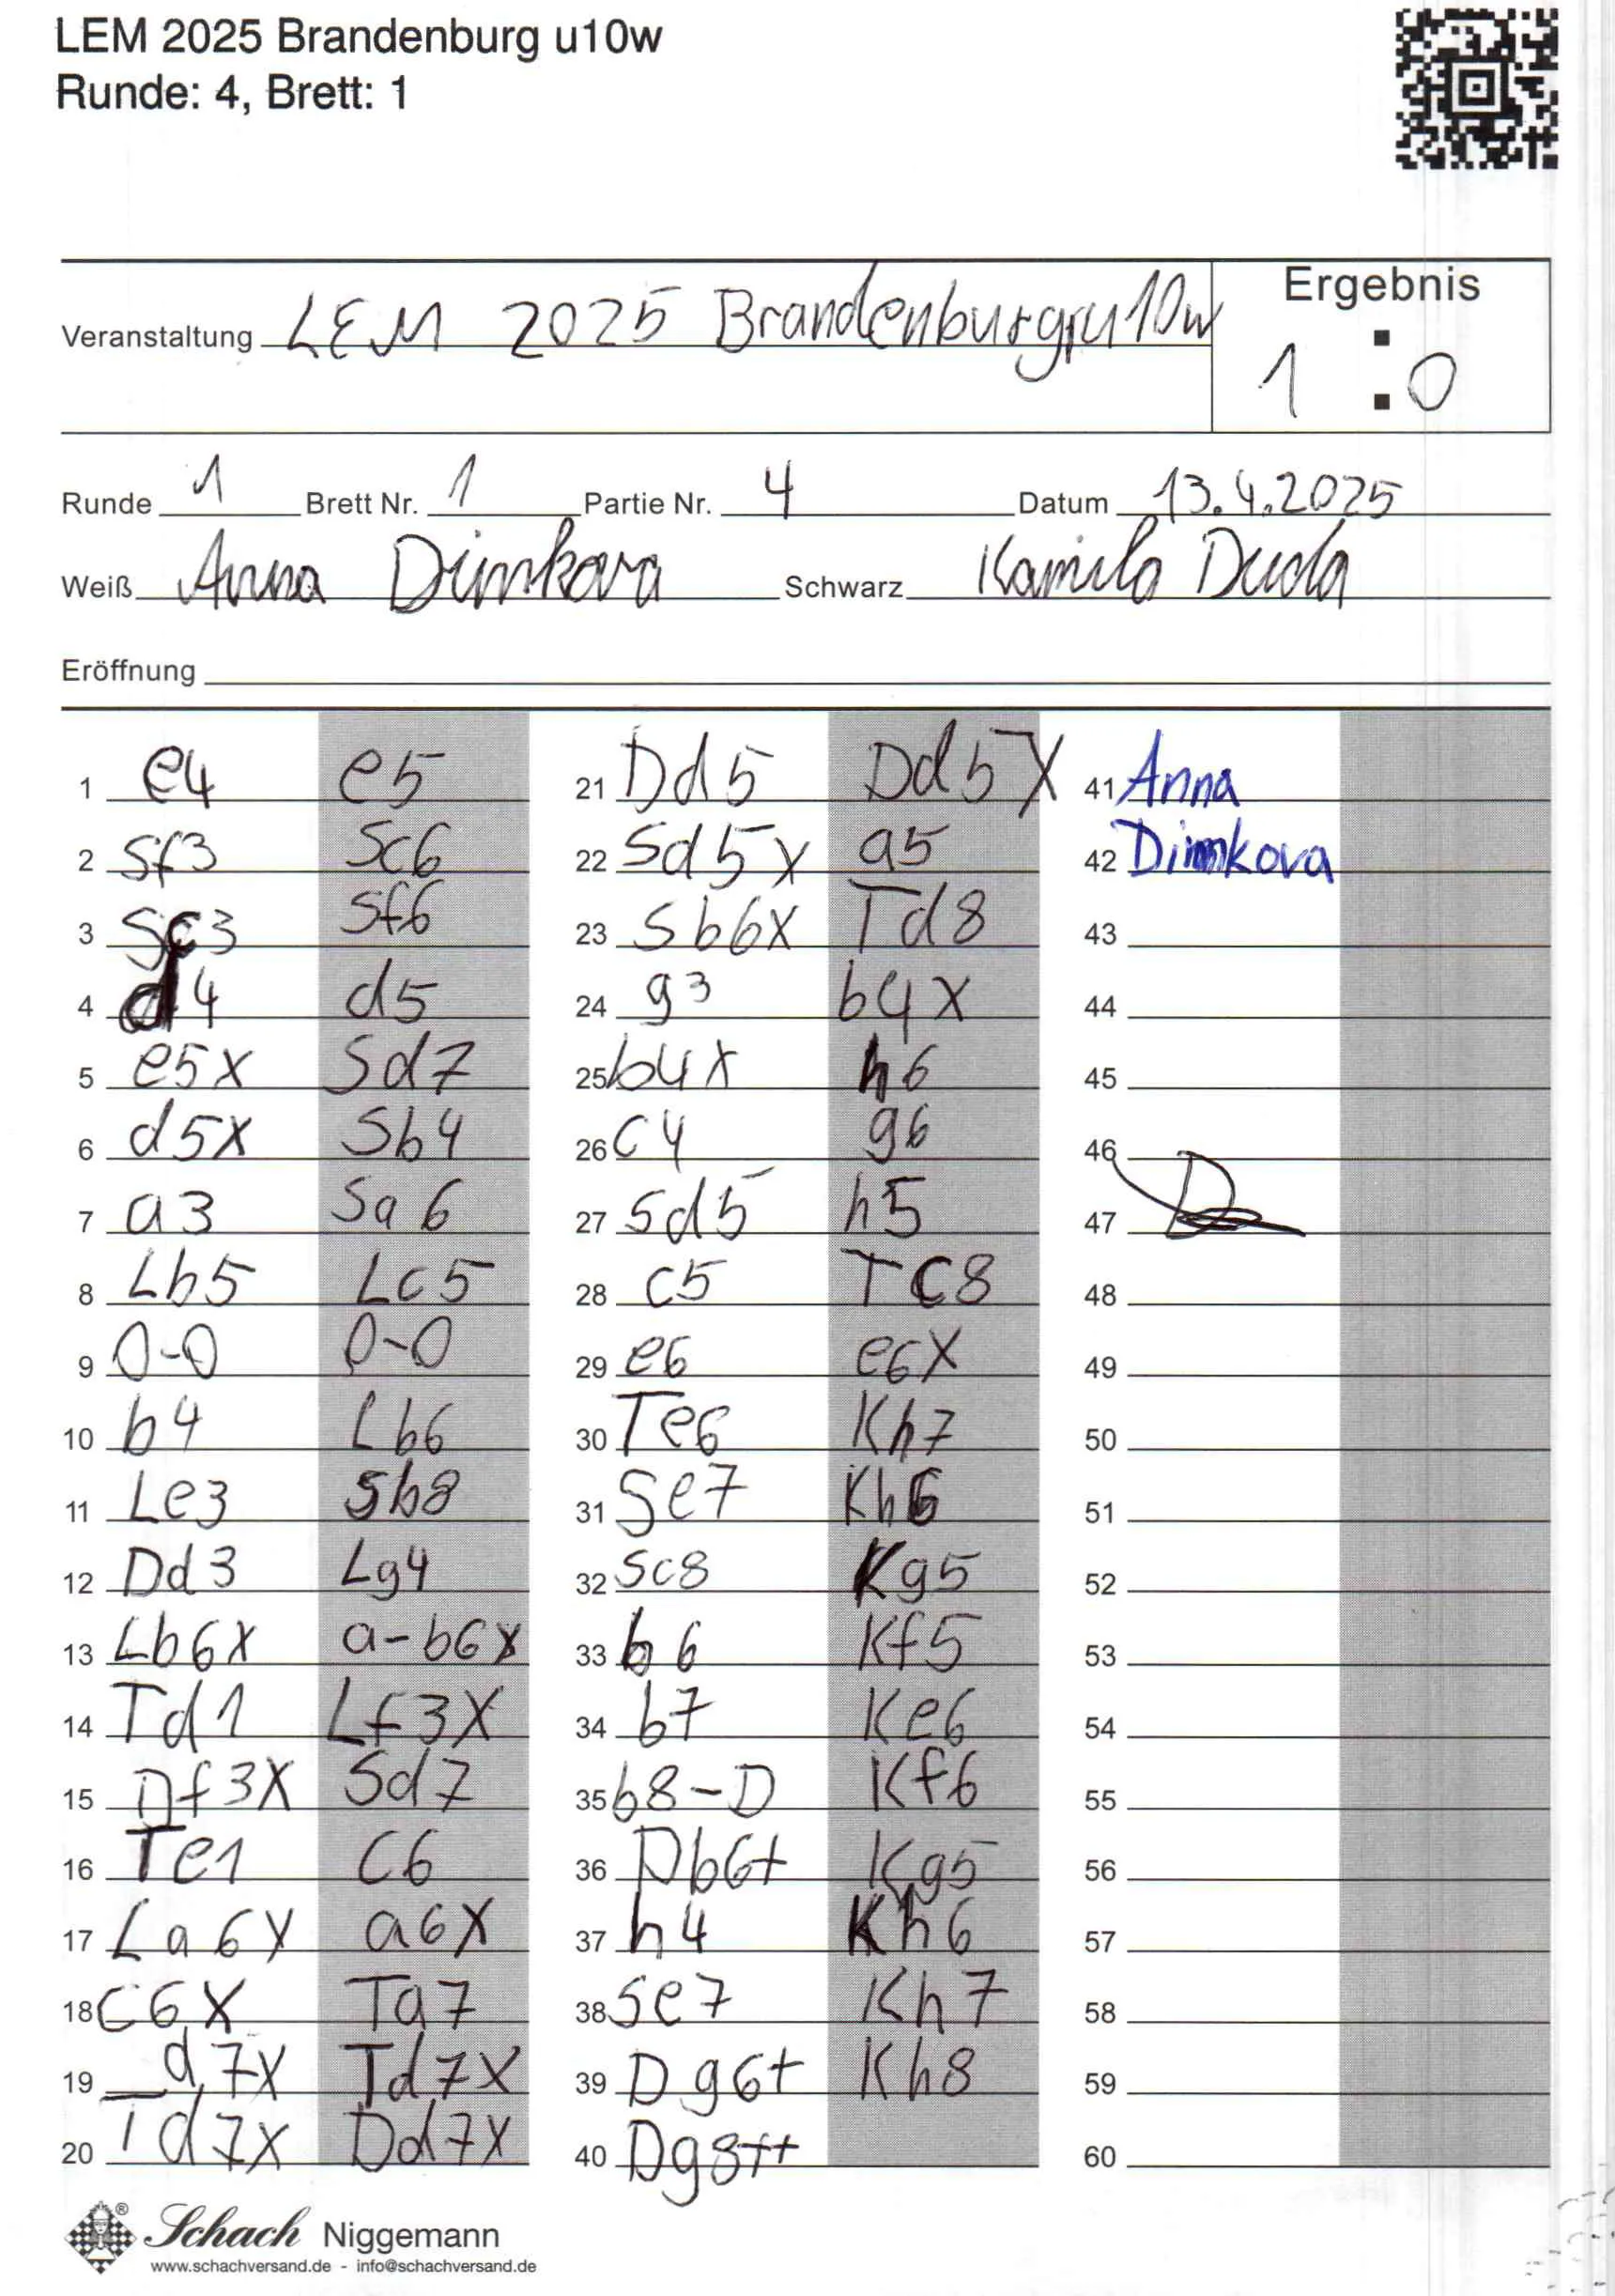 LEM 2025 Brandenburg u10w
Runde: 4, Brett: 1
Ergebnis
Veranstaltung LEM 2025 Brandenburgru10w
1 : 0
Runde 1 Brett Nr. 1 Partie Nr. 4 Datum 13.4.2025
Weiß Anna Dimkova Schwarz Kamila Duda
Eröffnung
1 e4 e5
2 Sf3 Sc6
3 Sc3 Sf6
4 d4 d5
5 e5x Sd7
6 d5x Sb4
7 a3 Sa6
8 Lb5 Lc5
9 0-0 0-0
10 b4 Lb6
11 Le3 Sb8
12 Dd3 Lg4
13 Lb6x a-b6x
14 Td1 Lf3x
15 Df3x Sd7
16 Te1 c6
17 La6x a6x
18 c6x Ta7
19 d7x Td7x
20 Td7x Dd7x
21 Dd5 Dd5x
22 Sd5x a5
23 Sb6x Td8
24 g3 b4x
25 b4x h6
26 c4 g6
27 Sd5 h5
28 c5 Tc8
29 e6 e6x
30 Te6 Kh7
31 Se7 Kh6
32 Sc8 Kg5
33 b6 Kf5
34 b7 Ke6
35 b8-D Kf6
36 Db6+ Kg5
37 h4 Kh6
38 Se7 Kh7
39 Dg6+ Kh8
40 Dg8++
41 Anna
42 Dimkova
43
44
45
46
47
48
49
50
51
52
53
54
55
56
57
58
59
60
® Schach Niggemann
www.schachversand.de - info@schachversand.de